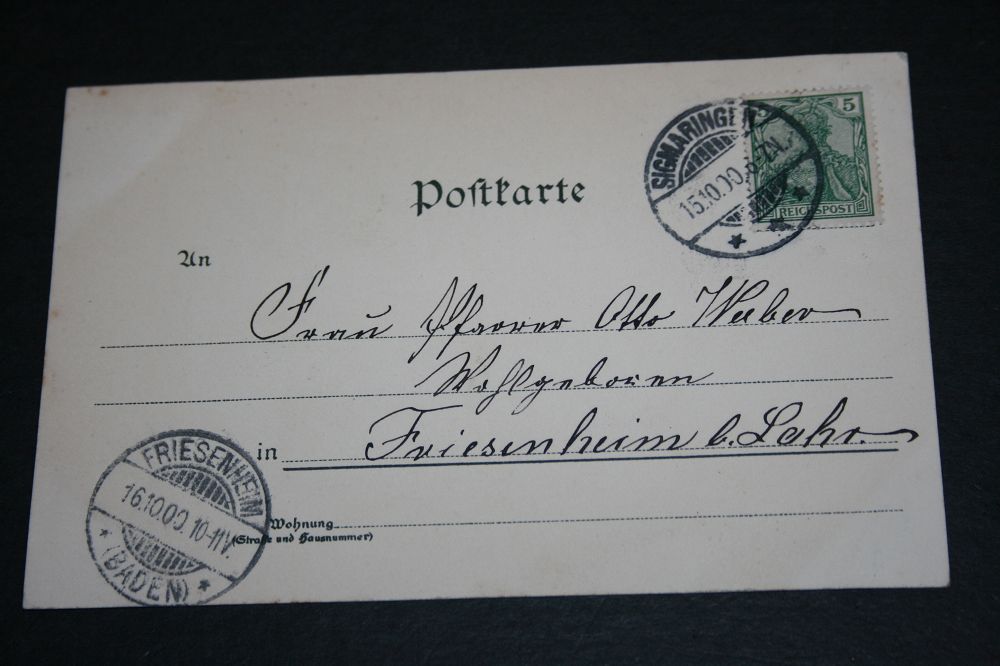 5
REICHSPOST
SIGMARINGEN
15.10.00.
Postkarte
An
Frau Pfarrer Otto Weber
Wohlgeboren
in Friesenheim b. Lahr.
Wohnung
(Straße und Hausnummer)
FRIESENHEIM
16.10.00. 10-11V.
(BADEN)